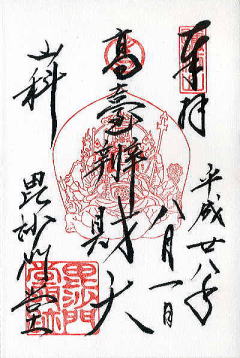 奉拝
平成廿八年
八月一日
高臺辨財天
山科
毘沙門堂
毘沙門
堂門跡